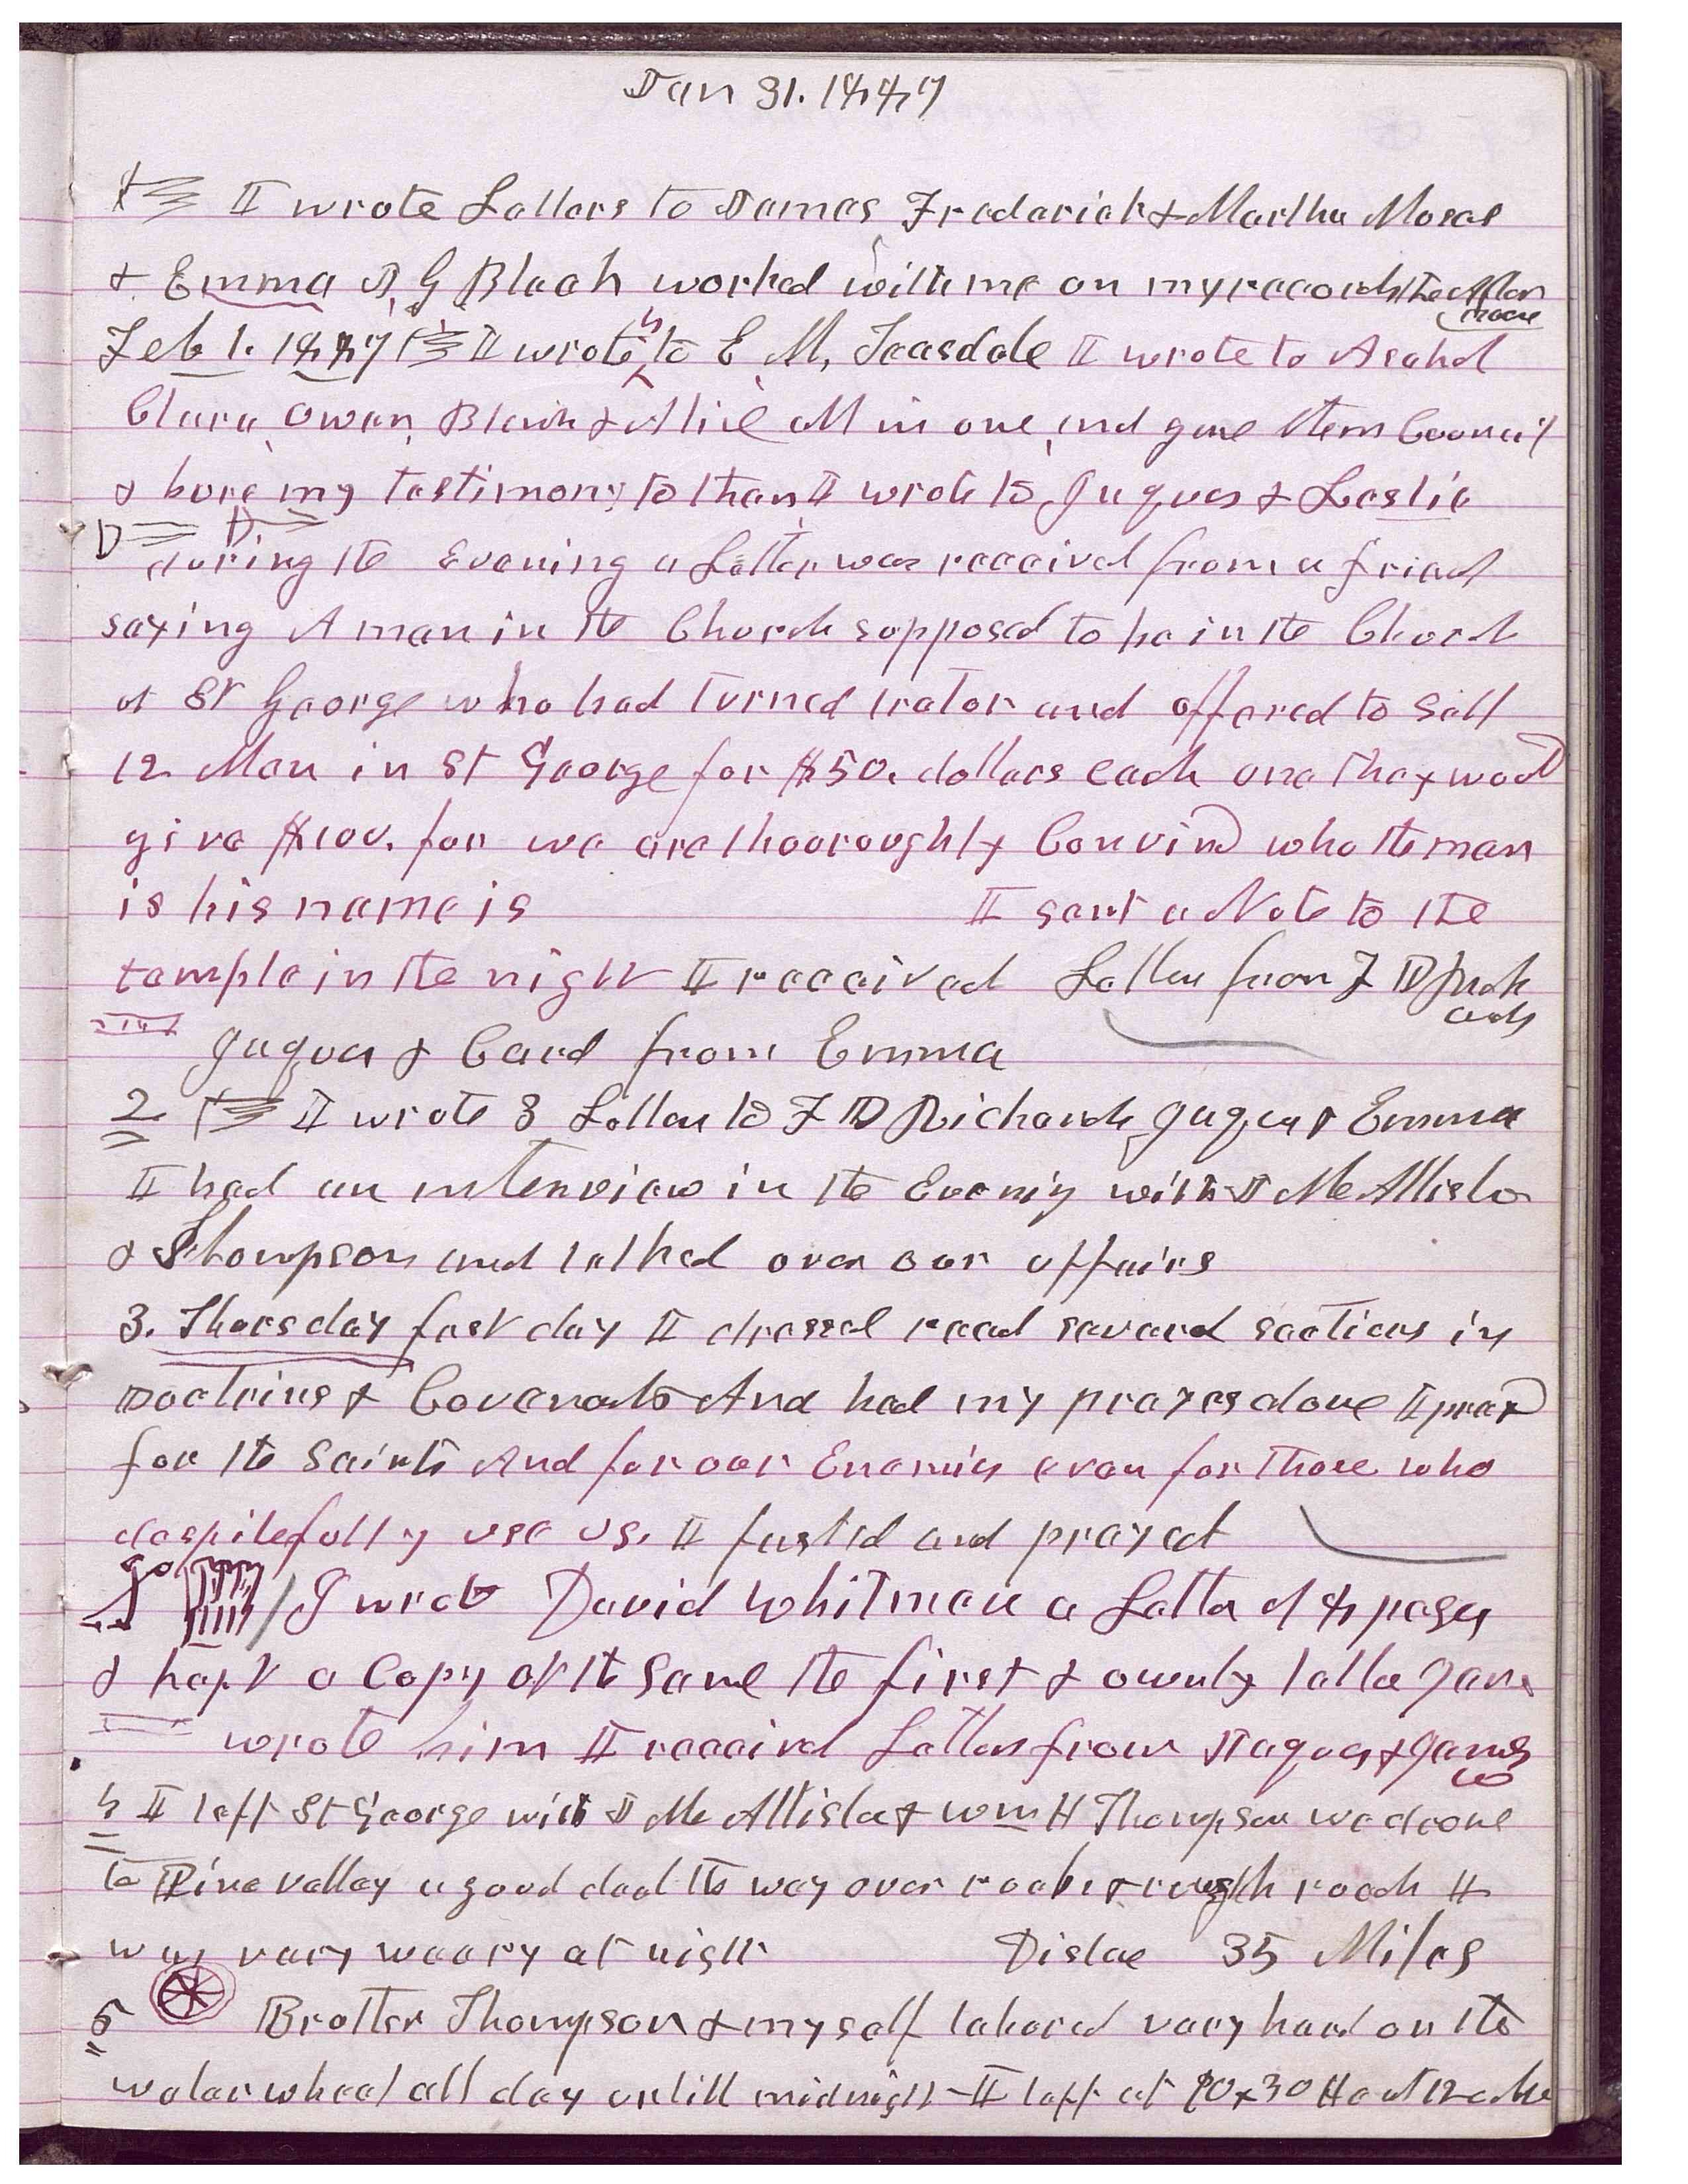 Jan 31. 1887
I wrote Letters to James, Frederick & Martha Moses
& Emma J. G Bleak worked with me on my records the Afternoon
Feb 1. 1887 I wrote 4 to E M, Teasdale I wrote to Asahel
Clara, Owen, Blain & Allie All in one, and gave them Council
& bore my testimony to them I wrote to Jaques & Leslie
during the Evening a Letter was received from a friend
saying A man in the Church supposed to be in the Church
at St George who had turned trator and offered to sell
12 Men in St George for $50. dollars each one they would
give $100. for we are thooroughly Convind who the man
is his name is I sent a Note to the
temple in the night I received Letters from F D Richards
Jaques & Card from Emma
2 I wrote 3 Letters to F D Richards, Jaques & Emma
I had an interview in the Evening with D McAllister
& Thompson and talked over our affairs
3. Thursday fast day I dressed read several sections in
Doctrins & Covenants And had my prayers alone I pray
for the Saints And for our Enemies even for those who
despitefully use us. I fasted and prayed
I wrote David Whitmer a Letter of 8 pages
& kept a Copy of the same the first & ownly letter I ever
wrote him I received Letters from Jaques & James
4 I left St George with D McAllister & Wm H Thompson we drove
to Pine valley a good deal the way over rocks & rough roads I
was very weary at night Distance 35 Miles
5 Brother Thompson & myself labored very hard on the
water wheel all day untill midnight I left at 10x30